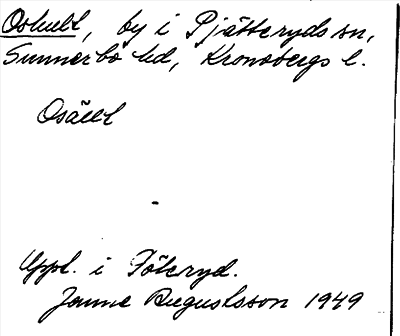 Oshult, by i Pjätteryds sn,
Sunnerbo hd, Kronobergs l.
Osället
Uppt. i Göteryd.
Janne Augustsson 1949